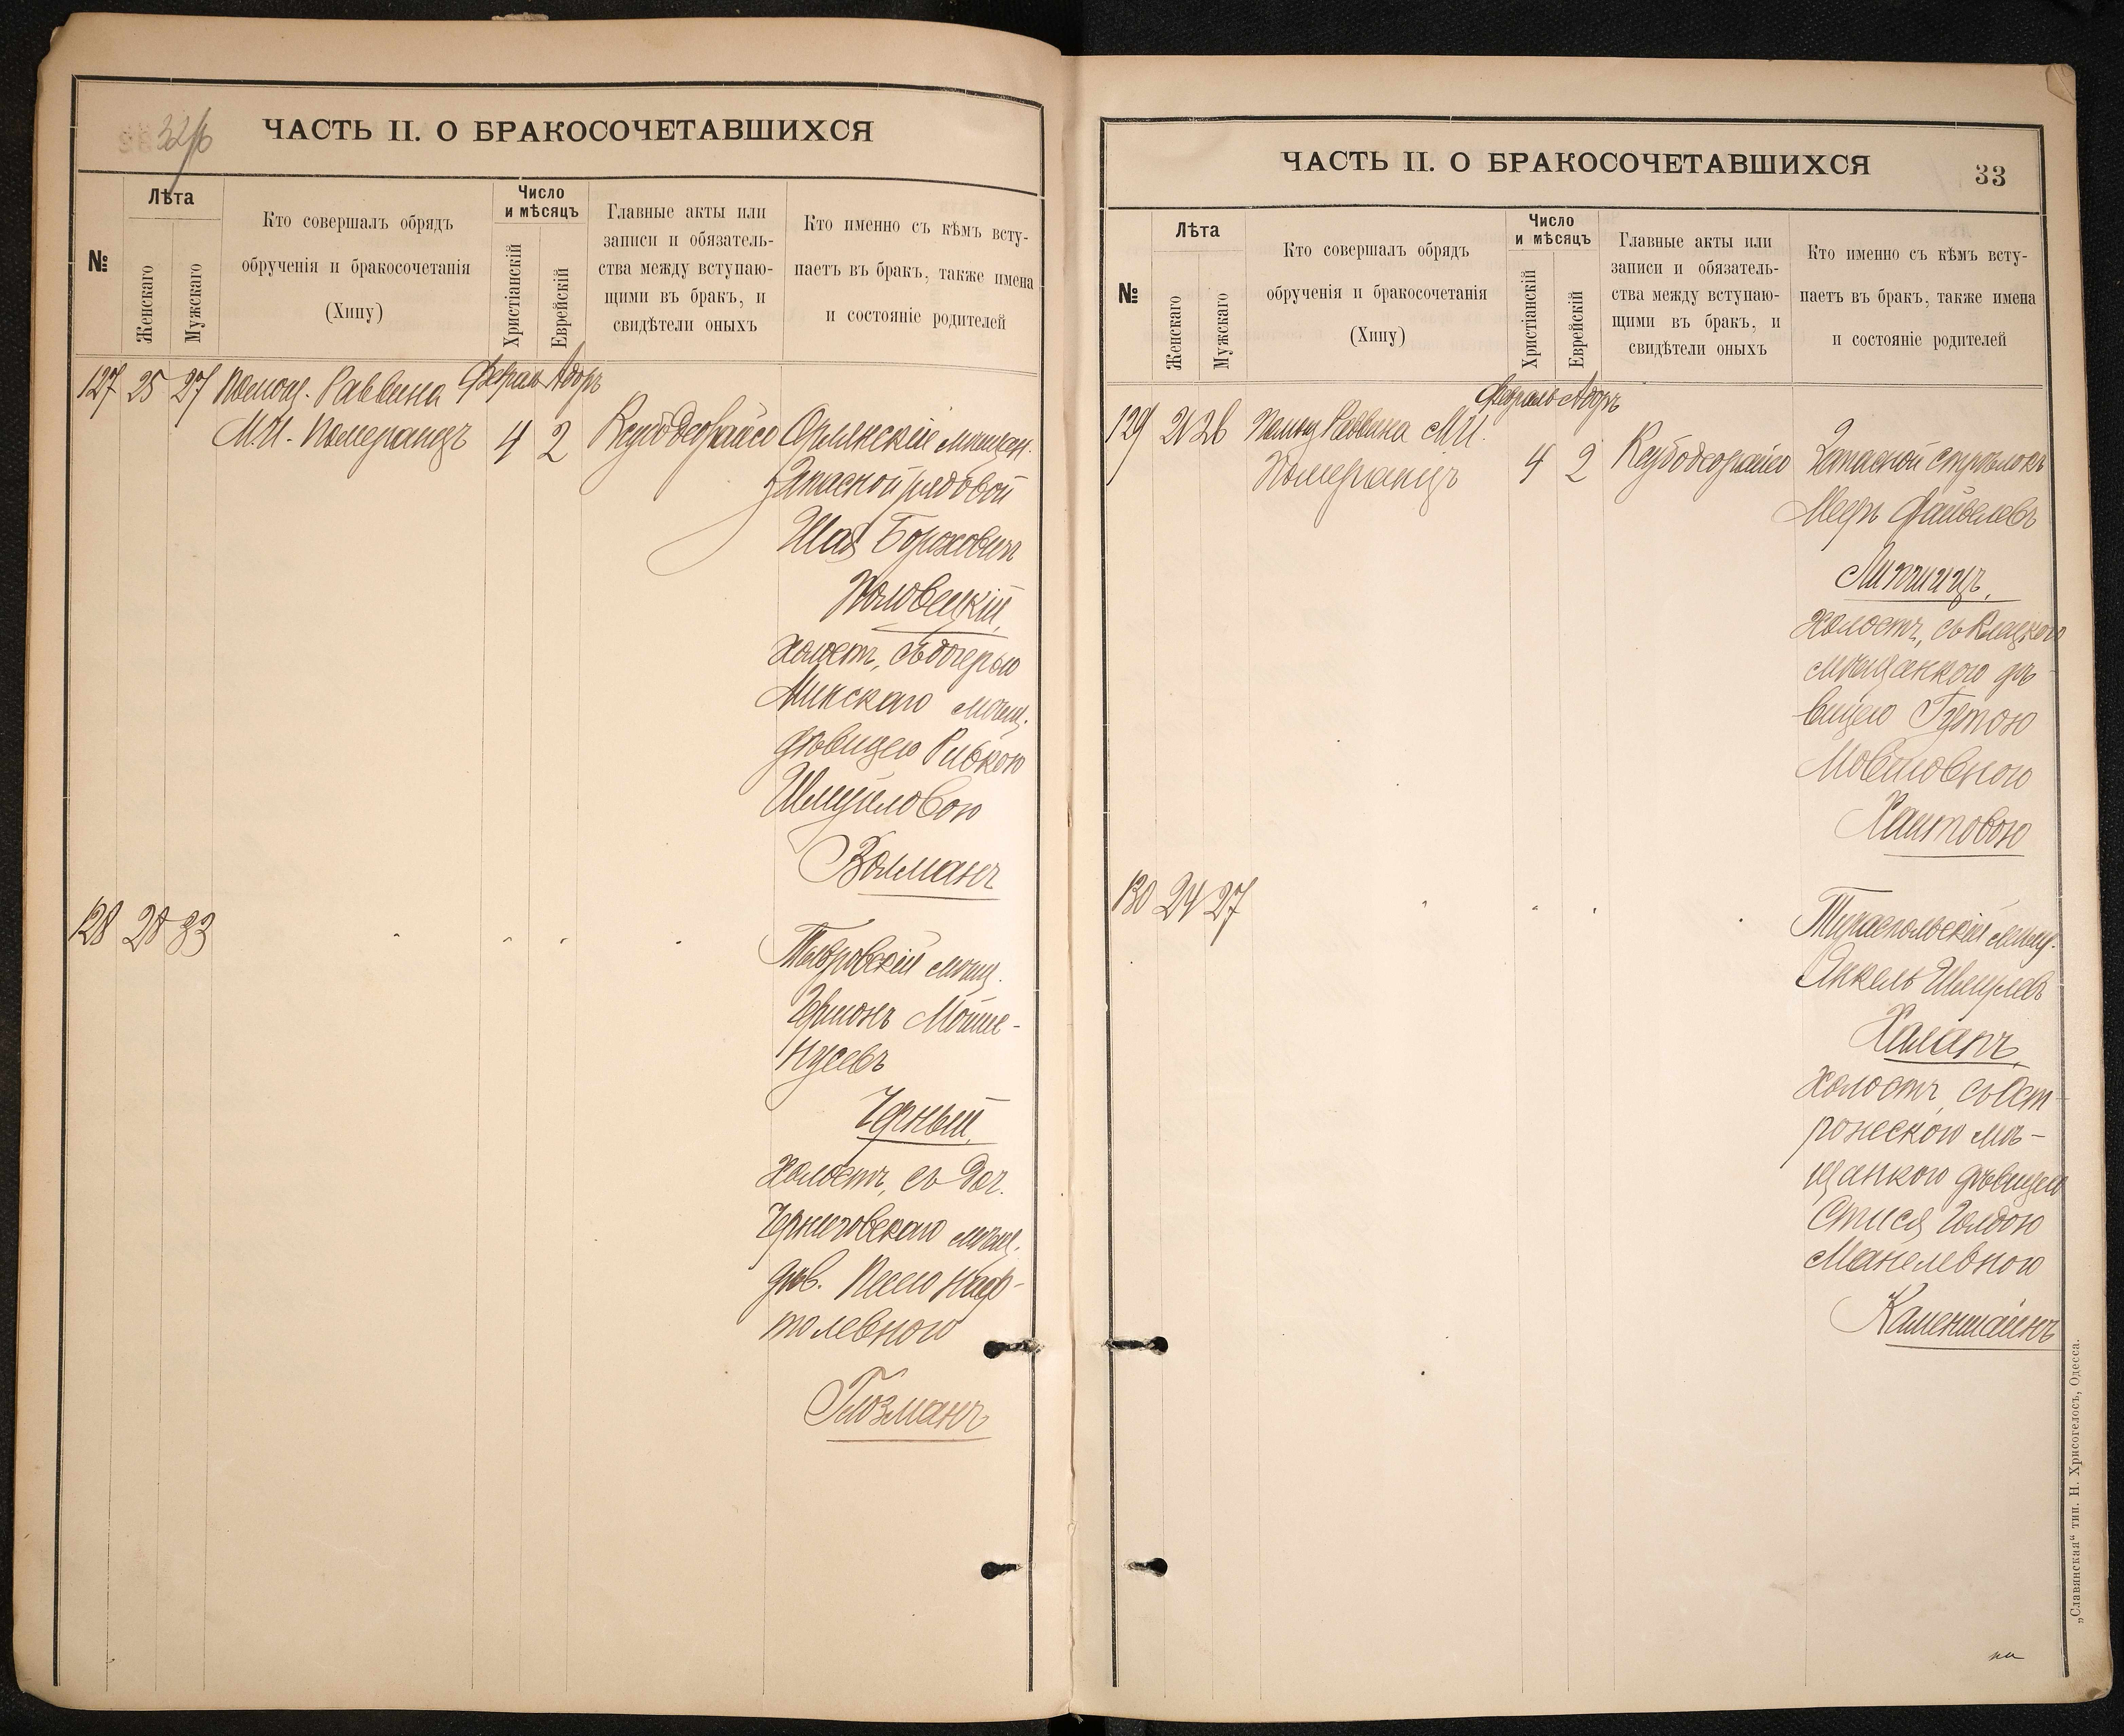 32/б
ЧАСТЬ II. О БРАКОСОЧЕТАВШИХСЯ
№
Лѣта
Женскаго
Мужскаго
Кто совершалъ обрядъ
обрученія и бракосочетанія
(Хипу)
Число
и мѣсяцъ
Христіанскій
Еврейскій
Главные акты или
записи и обязатель-
ства между вступаю-
щими въ бракъ, и
свидѣтели оныхъ
Кто именно съ кѣмъ всту-
паетъ въ бракъ, также имена
и состояніе родителей
127 25 27 Помощ. Раввина Февраль Адоръ
М.И. Померанцъ 4 2 мѣщан.
Запасной рядовой
Шая Борохович
Половецкій,
холост, съ дочерью
Минскаго мѣщ.
дѣвицею Ривкою
Шмуиловою
Волманъ
128 28 33 мѣщ.
Гершонъ Мойше-
Нусевъ
Черный,
холостъ, съ доч.
Черниговскаго мѣщ.
дѣв. Песею Наф-
толевною
Глозманъ
ЧАСТЬ II. О БРАКОСОЧЕТАВШИХСЯ
33
№
Лѣта
Женскаго
Мужскаго
Кто совершалъ обрядъ
обрученія и бракосочетанія
(Хипу)
Число
и мѣсяцъ
Христіанскій
Еврейскій
Главные акты или
записи и обязатель-
ства между вступаю-
щими въ бракъ, и
свидѣтели оныхъ
Кто именно съ кѣмъ всту-
паетъ въ бракъ, также имена
и состояніе родителей
Февраль Адоръ
129 21 26 Раввина М.И.
Померанцъ 4 2 Запасной стрѣлокъ
Мееръ Файвелевъ
Липшицъ,
холостъ, съ Клецкою
мѣщанкою дѣ-
вицею
Мовшовною
Хаитовою
130 24 27 Тираспольскій мѣщ.
Янкель Шмулевъ
холостъ, съ Ост-
рожскою мѣ-
щанкою дѣвицею
Голдою
Манелевною
Каменштейнъ
„Славянская“ тип. Н. Хрисогелосъ, Одесса.